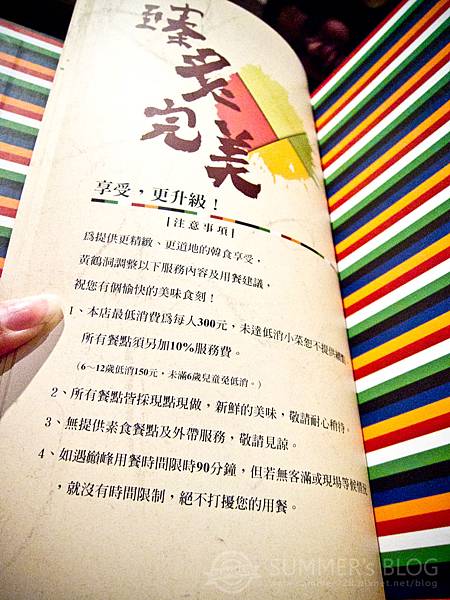 臻炙完美
享受，更升級！
|注意事項|
為提供更精緻、更道地的韓食享受，
黃鶴洞調整以下服務內容及用餐建議，
祝您有個愉快的美味食刻！
1、本店最低消費為每人300元，未達低消小菜恕不提供續
所有餐點須另加10%服務費。
(6～12歲低消150元，未滿6歲兒童免低消。)
2、所有餐點皆採現點現做，新鮮的美味，敬請耐心稍待。
3、無提供素食餐點及外帶服務，敬請見諒。
4、如遇巔峰用餐時間限時90分鐘，但若無客滿或現場等候情況
，就沒有時間限制，絕不打擾您的用餐。
SUMMER's BLOG